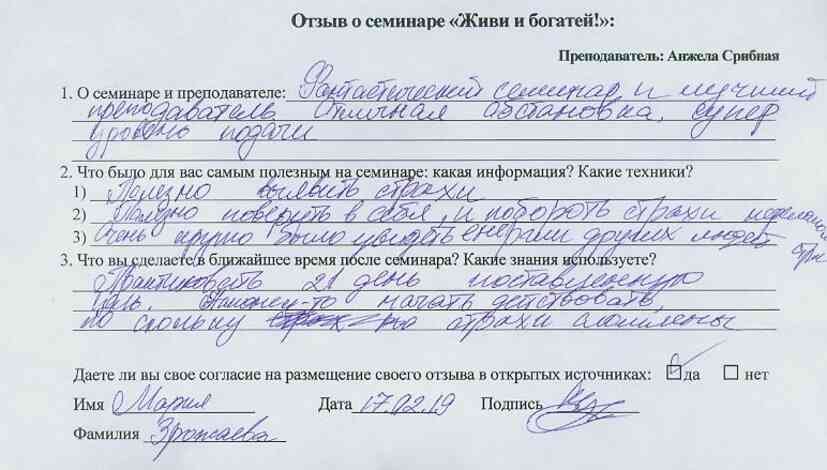 Отзыв о семинаре «Живи и богатей!»:
Преподаватель: Анжела Срибная
1. О семинаре и преподавателе: Фантастический семинар и лучший
преподаватель Отличная обстановка, супер
уровень подачи
2. Что было для вас самым полезным на семинаре: какая информация? Какие техники?
1) Полезно выявить страхи
2) Полезно поверить в себя, и побороть страхи
3) Очень круто было увидеть енергии других людей
3. Что вы сделаете в ближайшее время после семинара? Какие знания используете?
Практиковать 21 день поставленную
цель. Наконец-то начать действовать,
по скольку страхи сломлены
Даете ли вы свое согласие на размещение своего отзыва в открытых источниках: да нет
Имя Мария Дата 17.02.19 Подпись
Фамилия